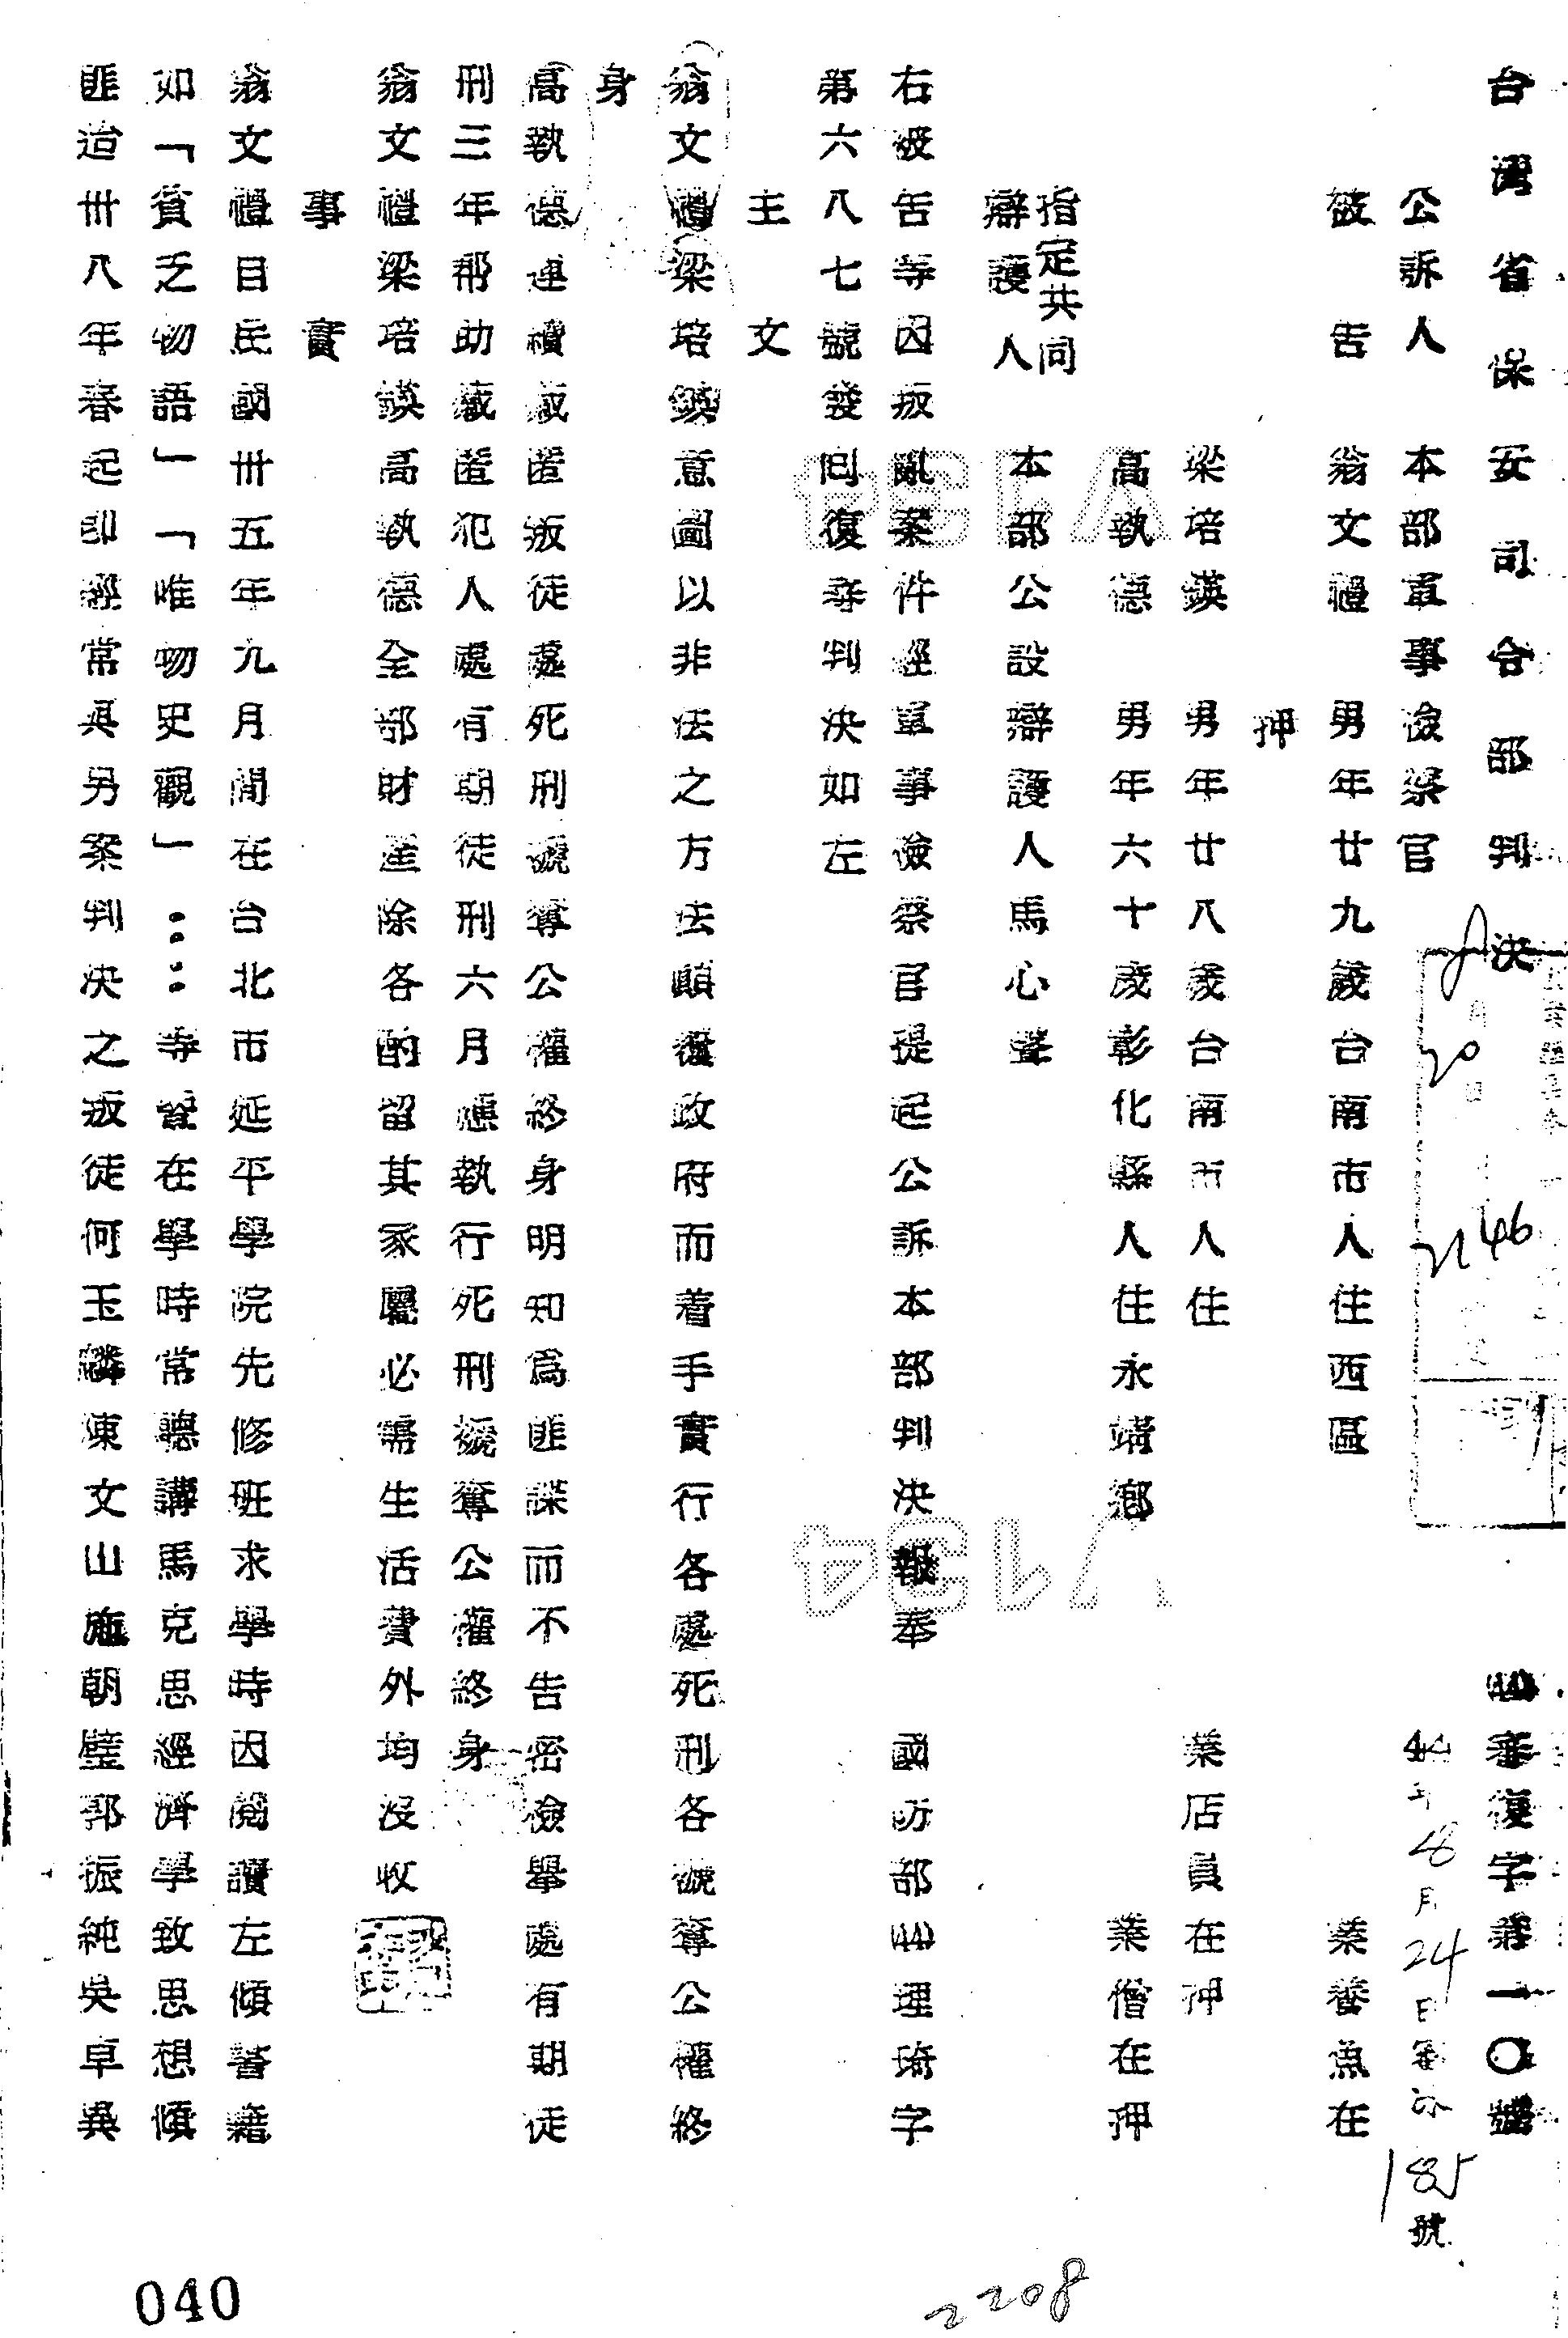 台灣省保安司令部判決
審復字第一〇號
44年8月24日審  185號
公訴人 本部軍事檢察官
被告 翁文禮 男年廿九歲台南市人住西區 業養魚在
押
梁培鍈 男年廿八歲台南市人住 業店員在押
高執德 男年六十歲彰化縣人住永靖鄉 業僧在押
指定共同
辯護人 本部公設辯護人馬心聲
右被告等因叛亂案件經軍事檢察官提起公訴本部判決報奉 國防部 理琦字
第六八七號發回復審判決如左
主文
翁文禮梁培鍈意圖以非法之方法顛覆政府而着手實行各處死刑各褫奪公權終
身
高執德連續藏匿叛徒處死刑褫奪公權終身明知爲匪諜而不告密檢舉處有期徒
刑三年帮助藏匿犯人處有期徒刑六月應執行死刑褫奪公權終身
翁文禮梁培鍈高執德全部財產除各酌留其家屬必需生活費外均沒收
事實
翁文禮自民國卅五年九月間在台北市延平學院先修班求學時因閱讀左傾書籍
如「貧乏物語」「唯物史觀」……等暨在學時常聽講馬克思經濟學致思想傾
匪迨卅八年春起即經常與另案判決之叛徒何玉麟陳文山施朝璧郭振純吳卓異
46
2208
040